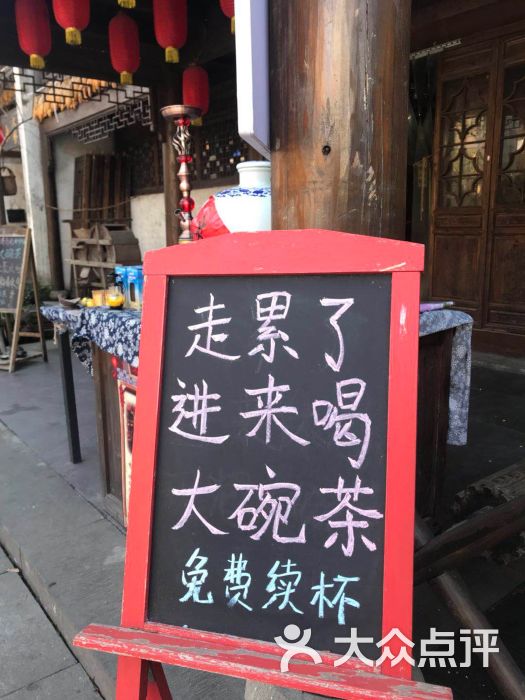 走累了
进来喝
大碗茶
免费续杯
大众点评